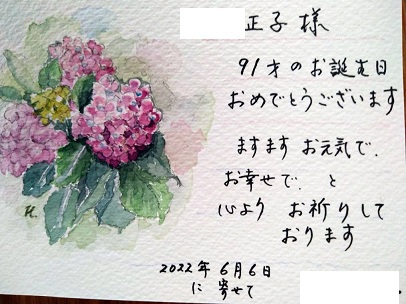 正子様
91才のお誕生日
おめでとうございます
ますます お元気で、
お幸せで、と
心より お祈りして
おります
2022年6月6日
に寄せて